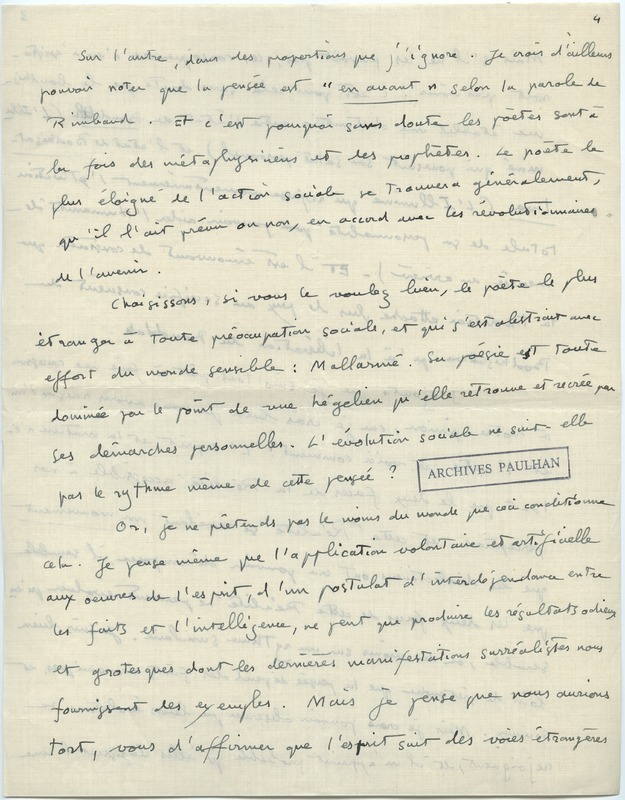 4
Sur l'autre, dans des proportions que j'ignore. Je crois d'ailleurs
pouvoir noter que la pensée est "en avant" selon la parole de
Rimbaud. Et c'est pourquoi sans doute les poètes sont à
la fois des métaphysiciens et des prophètes. Le poète le
plus éloigné de l'action sociale se trouvera généralement,
qu'il l'ait prévu ou non, en accord avec les révolutionnaires
de l'avenir.
Choisissons, si vous le voulez bien, le poète le plus
étranger à toute préoccupation sociale, et qui s'est abstrait avec
effort du monde sensible : Mallarmé. Sa poésie est toute
dominée par le point de vue hégélien qu'elle retrouve et recrée par
ses démarches personnelles. L'évolution sociale ne suit-elle
pas le rythme même de cette pensée ?
ARCHIVES PAULHAN
Or, je ne prétends pas le moins du monde que ceci conditionne
cela. Je pense même que l'application volontaire et artificielle
aux oeuvres de l'esprit, d'un postulat d'interdépendance entre
les faits et l'intelligence, ne peut que produire les résultats odieux
et grotesques dont les dernières manifestations surréalistes nous
fournissent des exemples. Mais je pense que nous aurions
tort, vous d'affirmer que l'esprit suit des voies étrangères